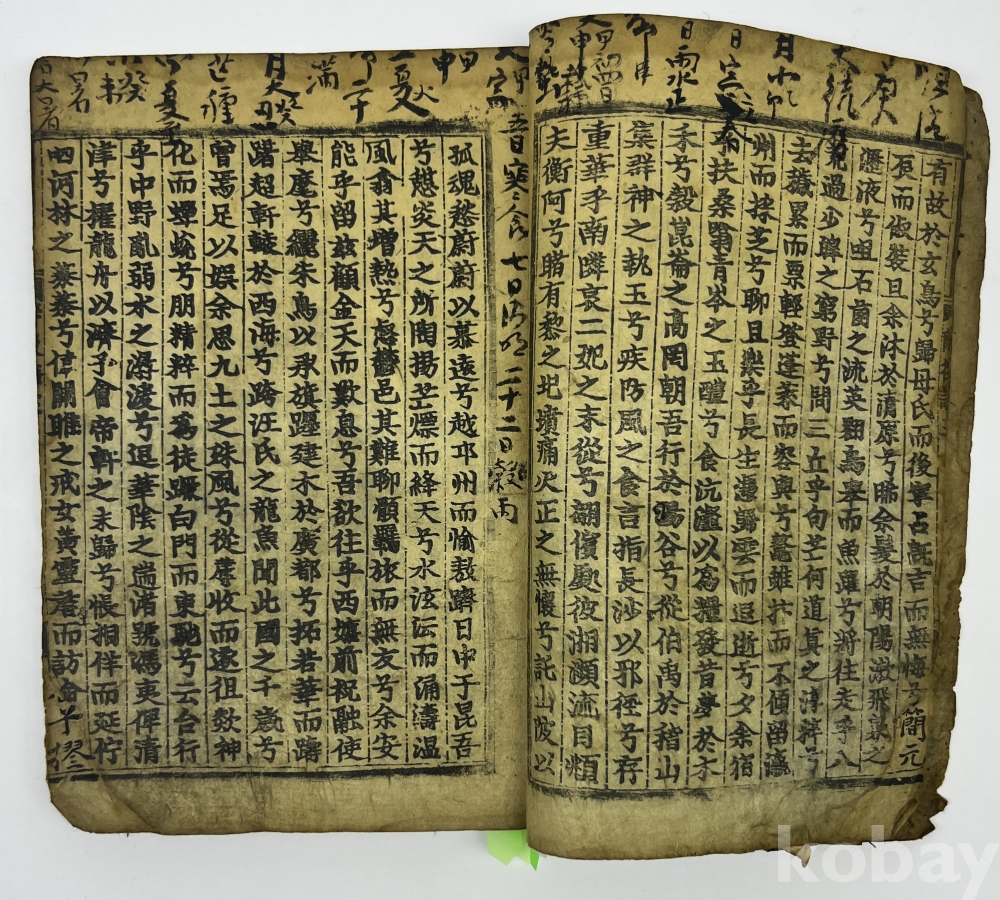 有故於玄鳥兮歸母氏而後寧占既吉而無悔兮簡元
辰而俶裝旦余沐於清原兮晞余髮於朝陽漱飛泉之
瀝液兮咀石菌之流英翾鳥舉而魚躍兮將往走乎八
荒過少皞之窮野兮問三丘乎句芒何道眞之淳粹兮
去穢累而票輕登蓬萊而容與兮鼇雖抃而不傾留瀛
州而採芝兮聊且樂乎長生憑歸雲而遐逝兮夕余宿
乎扶桑噏青岑之玉醴兮食沆瀣以爲糧發昔夢於木
禾兮穀崑崙之高岡朝吾行於暘谷兮從伯禹於稽山
集群神之執玉兮疾防風之食言指長沙以邪徑兮存
重華乎南隣哀二妃之未從兮翩儐處彼湘瀕流目頫
夫衡阿兮睹有黎之圮墳痛火正之無懷兮託山陂以
五日寒食 七日清明 二十二日穀雨
孤魂愁蔚蔚以慕遠兮越卭州而愉敖躋日中于昆吾
兮憇炎天之所陶揚芒熛而絳天兮水泫沄而涌濤溫
風翕其增熱兮惄鬱邑其難聊顝羈旅而無友兮余安
能乎留玆顧金天而歎息兮吾欲往乎西嬉前祝融使
舉麾兮纚朱鳥以承旗躔建木於廣都兮拓若華而躊
躇超軒轅於西海兮跨汪氏之龍魚聞此國之千歲兮
曾焉足以娛余思九土之殊風兮從蓐收而遂徂欻神
化而蟬蛻兮朋精粹而爲徒蹶白門而東馳兮云台行
乎中野亂弱水之潺湲兮逗華陰之湍渚號馮夷俾清
津兮櫂龍舟以濟予會帝軒之未歸兮悵相佯而延佇
河林之蓁蓁兮偉關雎之戒女黃靈詹而訪命兮摎
kobay